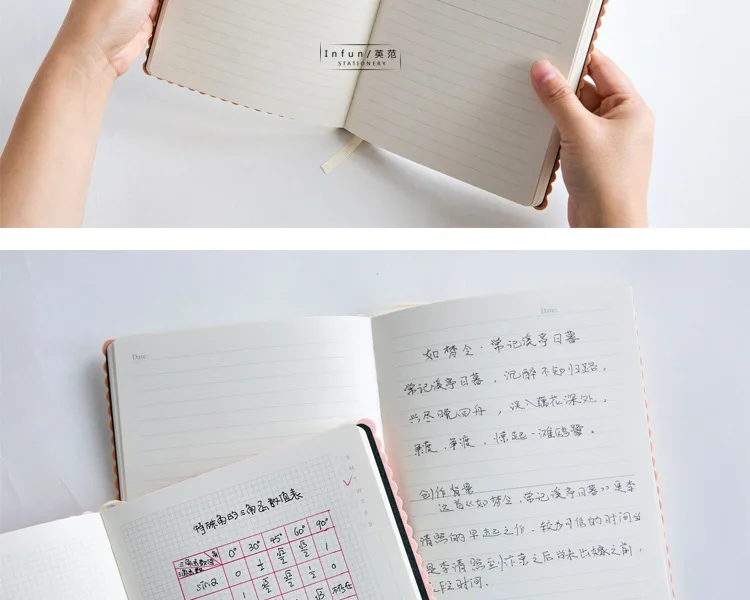 Infun/英范
STATIONERY
Date:
Date:
如梦令·常记溪亭日暮
常记溪亭日暮，沉醉不知归路，
兴尽晚回舟，误入藕花深处。
争渡，争渡，惊起一滩鸥鹭。
创作背景
这首《如梦令·常记溪亭日暮》是李
清照的早起之作，较为可信的时间当
是李清照到汴京之后尚未出嫁之前，
段时间.
特殊角的三角函数值表
三角函数值 角
三角函数
0° 30° 45° 60° 90°
sinα 0 1/2 √2/2 √3/2 1
1 √3/2 √2/2 1/2 0
√3 不存在